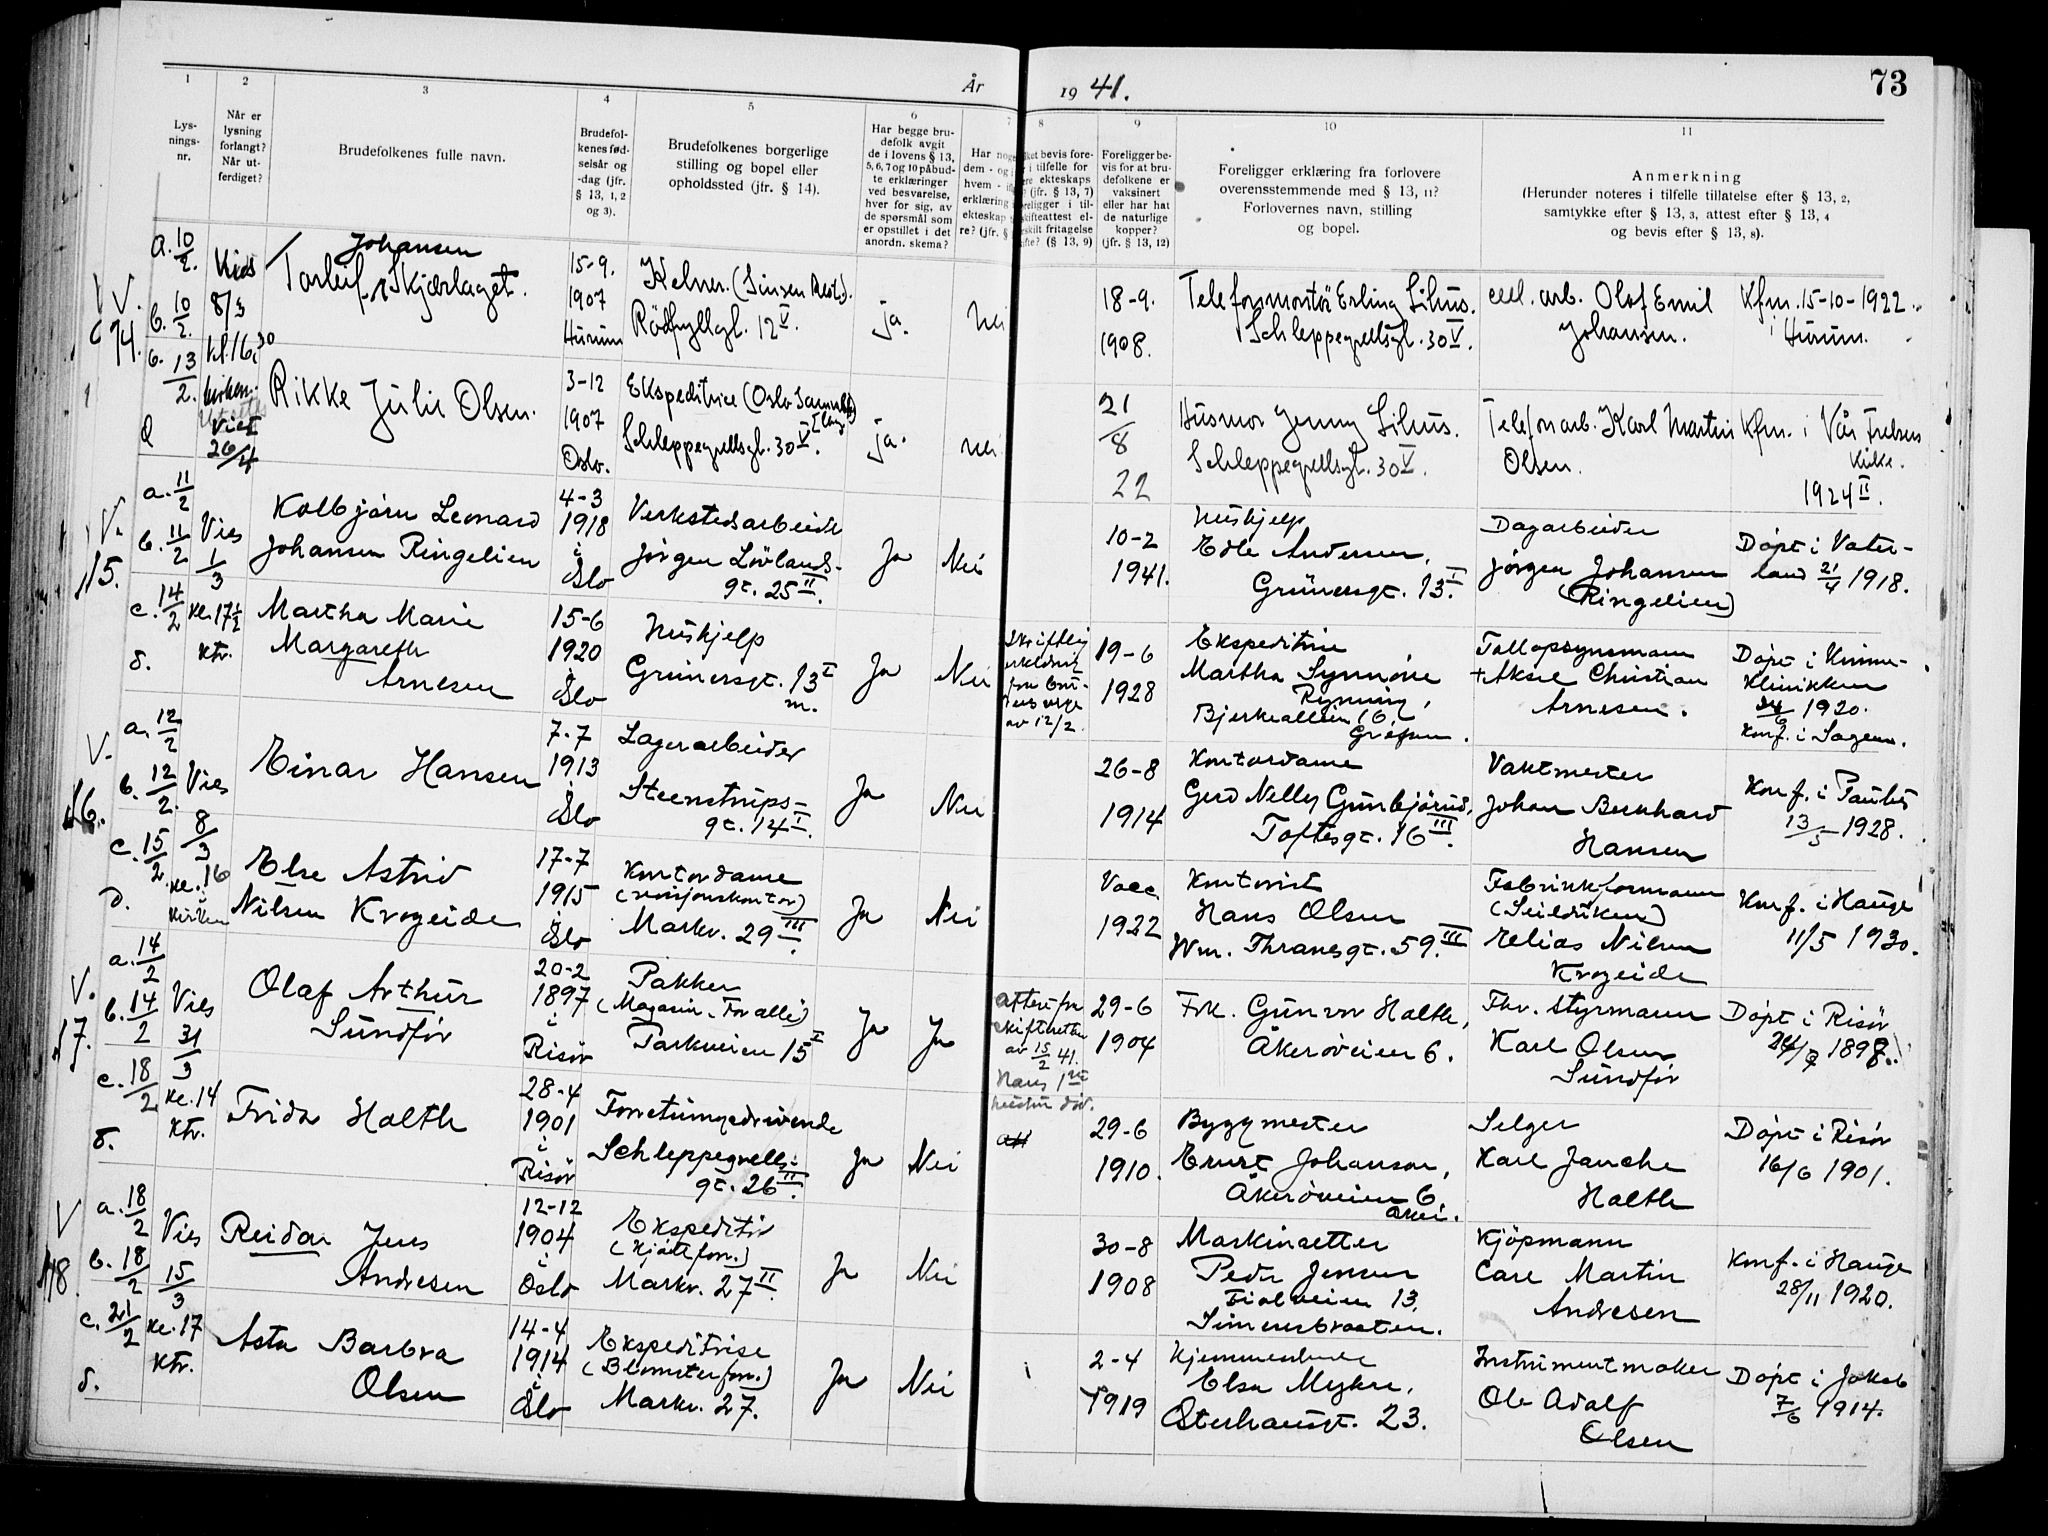 År 19 41. 73
1 2 3 4 5 6 7 8 9 10 11
Lys-
nings-
nr.
Når er
lysning
forlangt?
Når ut-
ferdiget?
Brudefolkenes fulle navn.
Brudefol-
kenes fød-
selsår og
-dag (jfr.
§ 13, 1, 2
og 3).
Brudefolkenes borgerlige
stilling og bopel eller
opholdssted (jfr. § 14).
Har begge bru-
defolk avgit
de i lovens § 13,
5, 6, 7 og 10 påbud-
te erklæringer
ved besvarelse,
hver for sig, av
de spørsmål som
er opstillet i det
anordn. skema?
Foreligger be-
vis for at bru-
defolkene er
vaksinert
eller har hat
de naturlige
kopper?
(jfr. § 13, 12)
Foreligger erklæring fra forlovere
overensstemmende med § 13, 11?
Forlovernes navn, stilling
og bopel.
Anmerkning
(Herunder noteres i tilfelle tillatelse efter § 13, 2,
samtykke efter § 13, 3, attest efter § 13, 4
og bevis efter § 13, 8).
V. 74.
a. 10/2.
b. 10/2.
c. 13/2.
Vies
8/3
kl. 16.30
kirken.
Viet
26/4
Johansen
Torleif Skjærlaget.
15-9.
1907
Hurum
Kelner. (Sinsen Rest.).
Rödfyllgt. 12 V.
ja.
nei
18-9.
1908.
Telefonmontör Erling Lihus.
Schleppegrellsgt. 30 V.
Olaf Emil
Johansen.
Kfm. 15-10-1922.
i Hurum.
Rikke Julie Olsen.
3-12
1907
Oslo.
Ekspeditrice
Schleppegrellsgt. 30 V.
ja.
nei
21/8
22
Husmor Jenny Lihus.
Schleppegrellsgt. 30 V.
Telefonarb. Karl Martin
Olsen.
Kfm. i Vår Frelsers
Kirke.
1924 II.
V.
15.
a. 11/2
b. 11/2
c. 14/2
d.
Vies
1/3
kl. 17½
ktr.
Kolbjørn Leonard
Johansen Ringelien
4-3
1918
i
Oslo
Verkstedsarbeider
Jörgen Lövlands-
gt. 25 II.
Ja
Nei
10-2
1941.
Hushjelp
Edle Andersen,
Grünersgt. 13 I.
Dagarbeider
Jørgen Johansen
(Ringelien)
Döpt i Vater-
land 21/4 1918.
Martha Marie
Margareth
Arnesen
15-6
1920
i
Oslo
Hushjelp
Grünersgt. 13 I
m.
Ja
Nei
Skriftlig
erklæring
av 12/2.
19-6
1928
Ekspeditrise
Martha Synnöve
Ryning,
Bjerkealleen 16,
Grefsen.
+ Aksel Christian
Arnesen.
Döpt i Kvinne-
klinikken
1920.
Konf. i Sagene.
V.
16.
a. 12/2
b. 12/2.
c. 15/2
d.
Vies
8/3
kl. 16
i
kirken
Einar Hansen
7-7
1913
i
Oslo
Lagerarbeider
Steenstrups-
gt. 14 I.
Ja
Nei
26-8
1914
Kontordame
Gerd Nelly Gunbjörud,
Toftesgt. 16 III.
Vaktmester
Johan Bernhard
Hansen
Konf. i Paulus
13/5 1928.
Else Astrid
Nilsen Krogeide
17-7
1915
i
Oslo
Kontordame
(revisjonskontor)
Markv. 29 III.
Ja
Nei
Vacc.
1922
Kontorist
Hans Olsen
Wm. Thranesgt. 59. III
Fabrikkformann
(Seilduken)
Elias Nilsen
Krogeide
Konf. i Hauge
11/5 1930.
V.
17.
a. 14/2
b. 14/2
c. 18/2
d.
Vies
31/3
kl. 14
ktr.
Olaf Arthur
Sundför
20-2
1897
i
Risör
Pakker
(Magasin For alle)
Parkveien 15 I
Ja
Ja
attest fra
skifteretten
av 15/2 41.
Hans 1ste
hustru död.
29-6
1904
Frk. Gunvor Holth,
Åkeröveien 6.
Fhv. styrmann
Karl Olsen
Sundför
Döpt i Risör
Frida Holth
28-4
1901
i
Risör
Forretningsdrivende
Schleppegrells-
gt. 26 II.
Ja
Nei
29-6
1910.
Byggmester
Ernst Johansen,
Åkeröveien 6
Selger
Karl Janche
Holth
Döpt i Risör
16/6 1901.
V
18.
a. 18/2
b. 18/2
c. 21/2
d.
Vies
15/3
kl. 17
ktr.
Reidar Jens
Andresen
12-12
1904
i
Oslo
Ekspeditör
(Kjöttforr.)
Markv. 27 II.
Ja
Nei
30-8
1908
Maskinsetter
Peder Jensen
Fiolveien 13,
Simensbraaten.
Kjöpmann
Carl Martin
Andresen
Konf. i Hauge
28/11 1920.
Asta Barbra
Olsen
14-4
1914
i
Oslo
Ekspeditrise
(Blomsterforr.)
Markv. 27.
Ja
Nei
2-4
1919
Elsa Myhre,
Osterhausgt. 23.
Instrumentmaker
Ole Adolf
Olsen
Döpt i Jakob
7/6 1914.